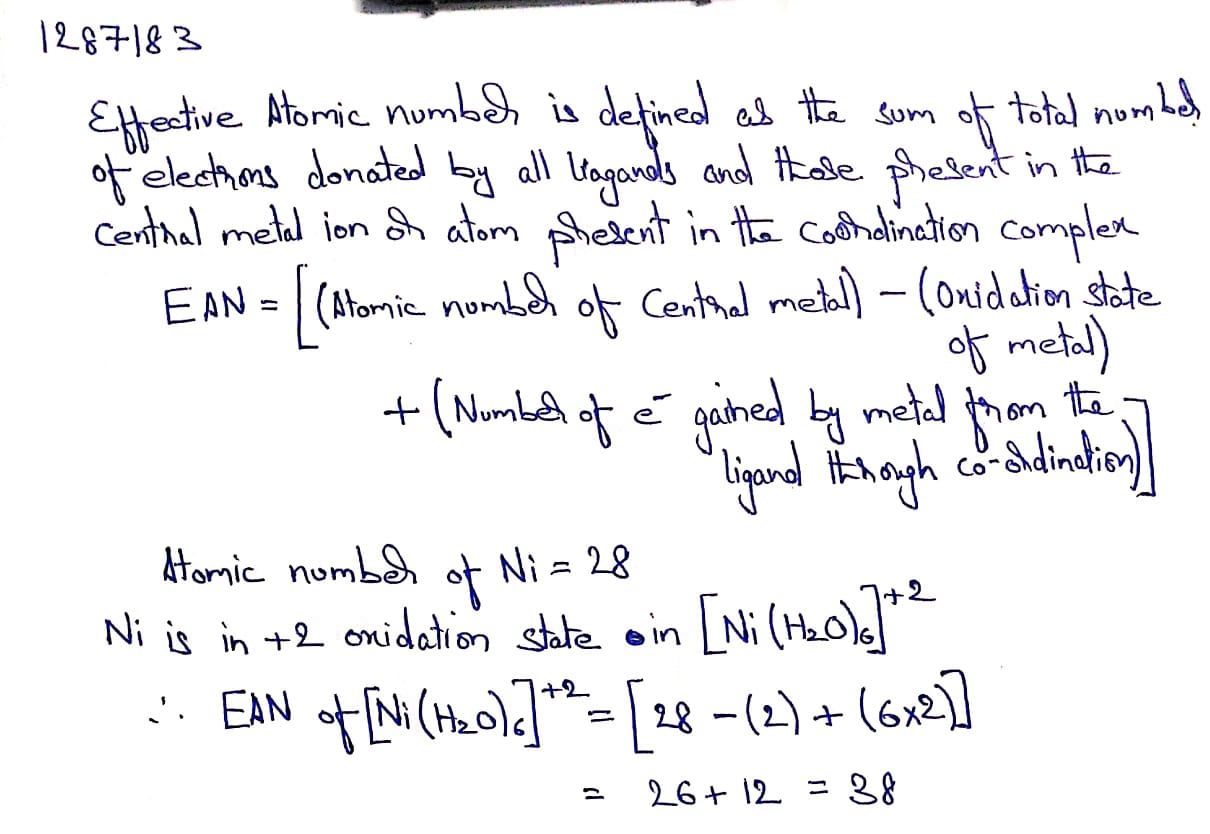 1287183
Effective Atomic number is defined as the sum of total number
of electrons donated by all ligands and those present in the
central metal ion or atom present in the coordination complex
EAN = [(Atomic number of Central metal) - (Oxidation state
of metal)
+ (Number of e⁻ gained by metal from the
ligand through co-ordination)]
Atomic number of Ni = 28
Ni is in +2 oxidation state in [Ni(H₂O)₆]⁺²
∴ EAN of [Ni(H₂O)₆]⁺² = [28 - (2) + (6x2)]
= 26 + 12 = 38